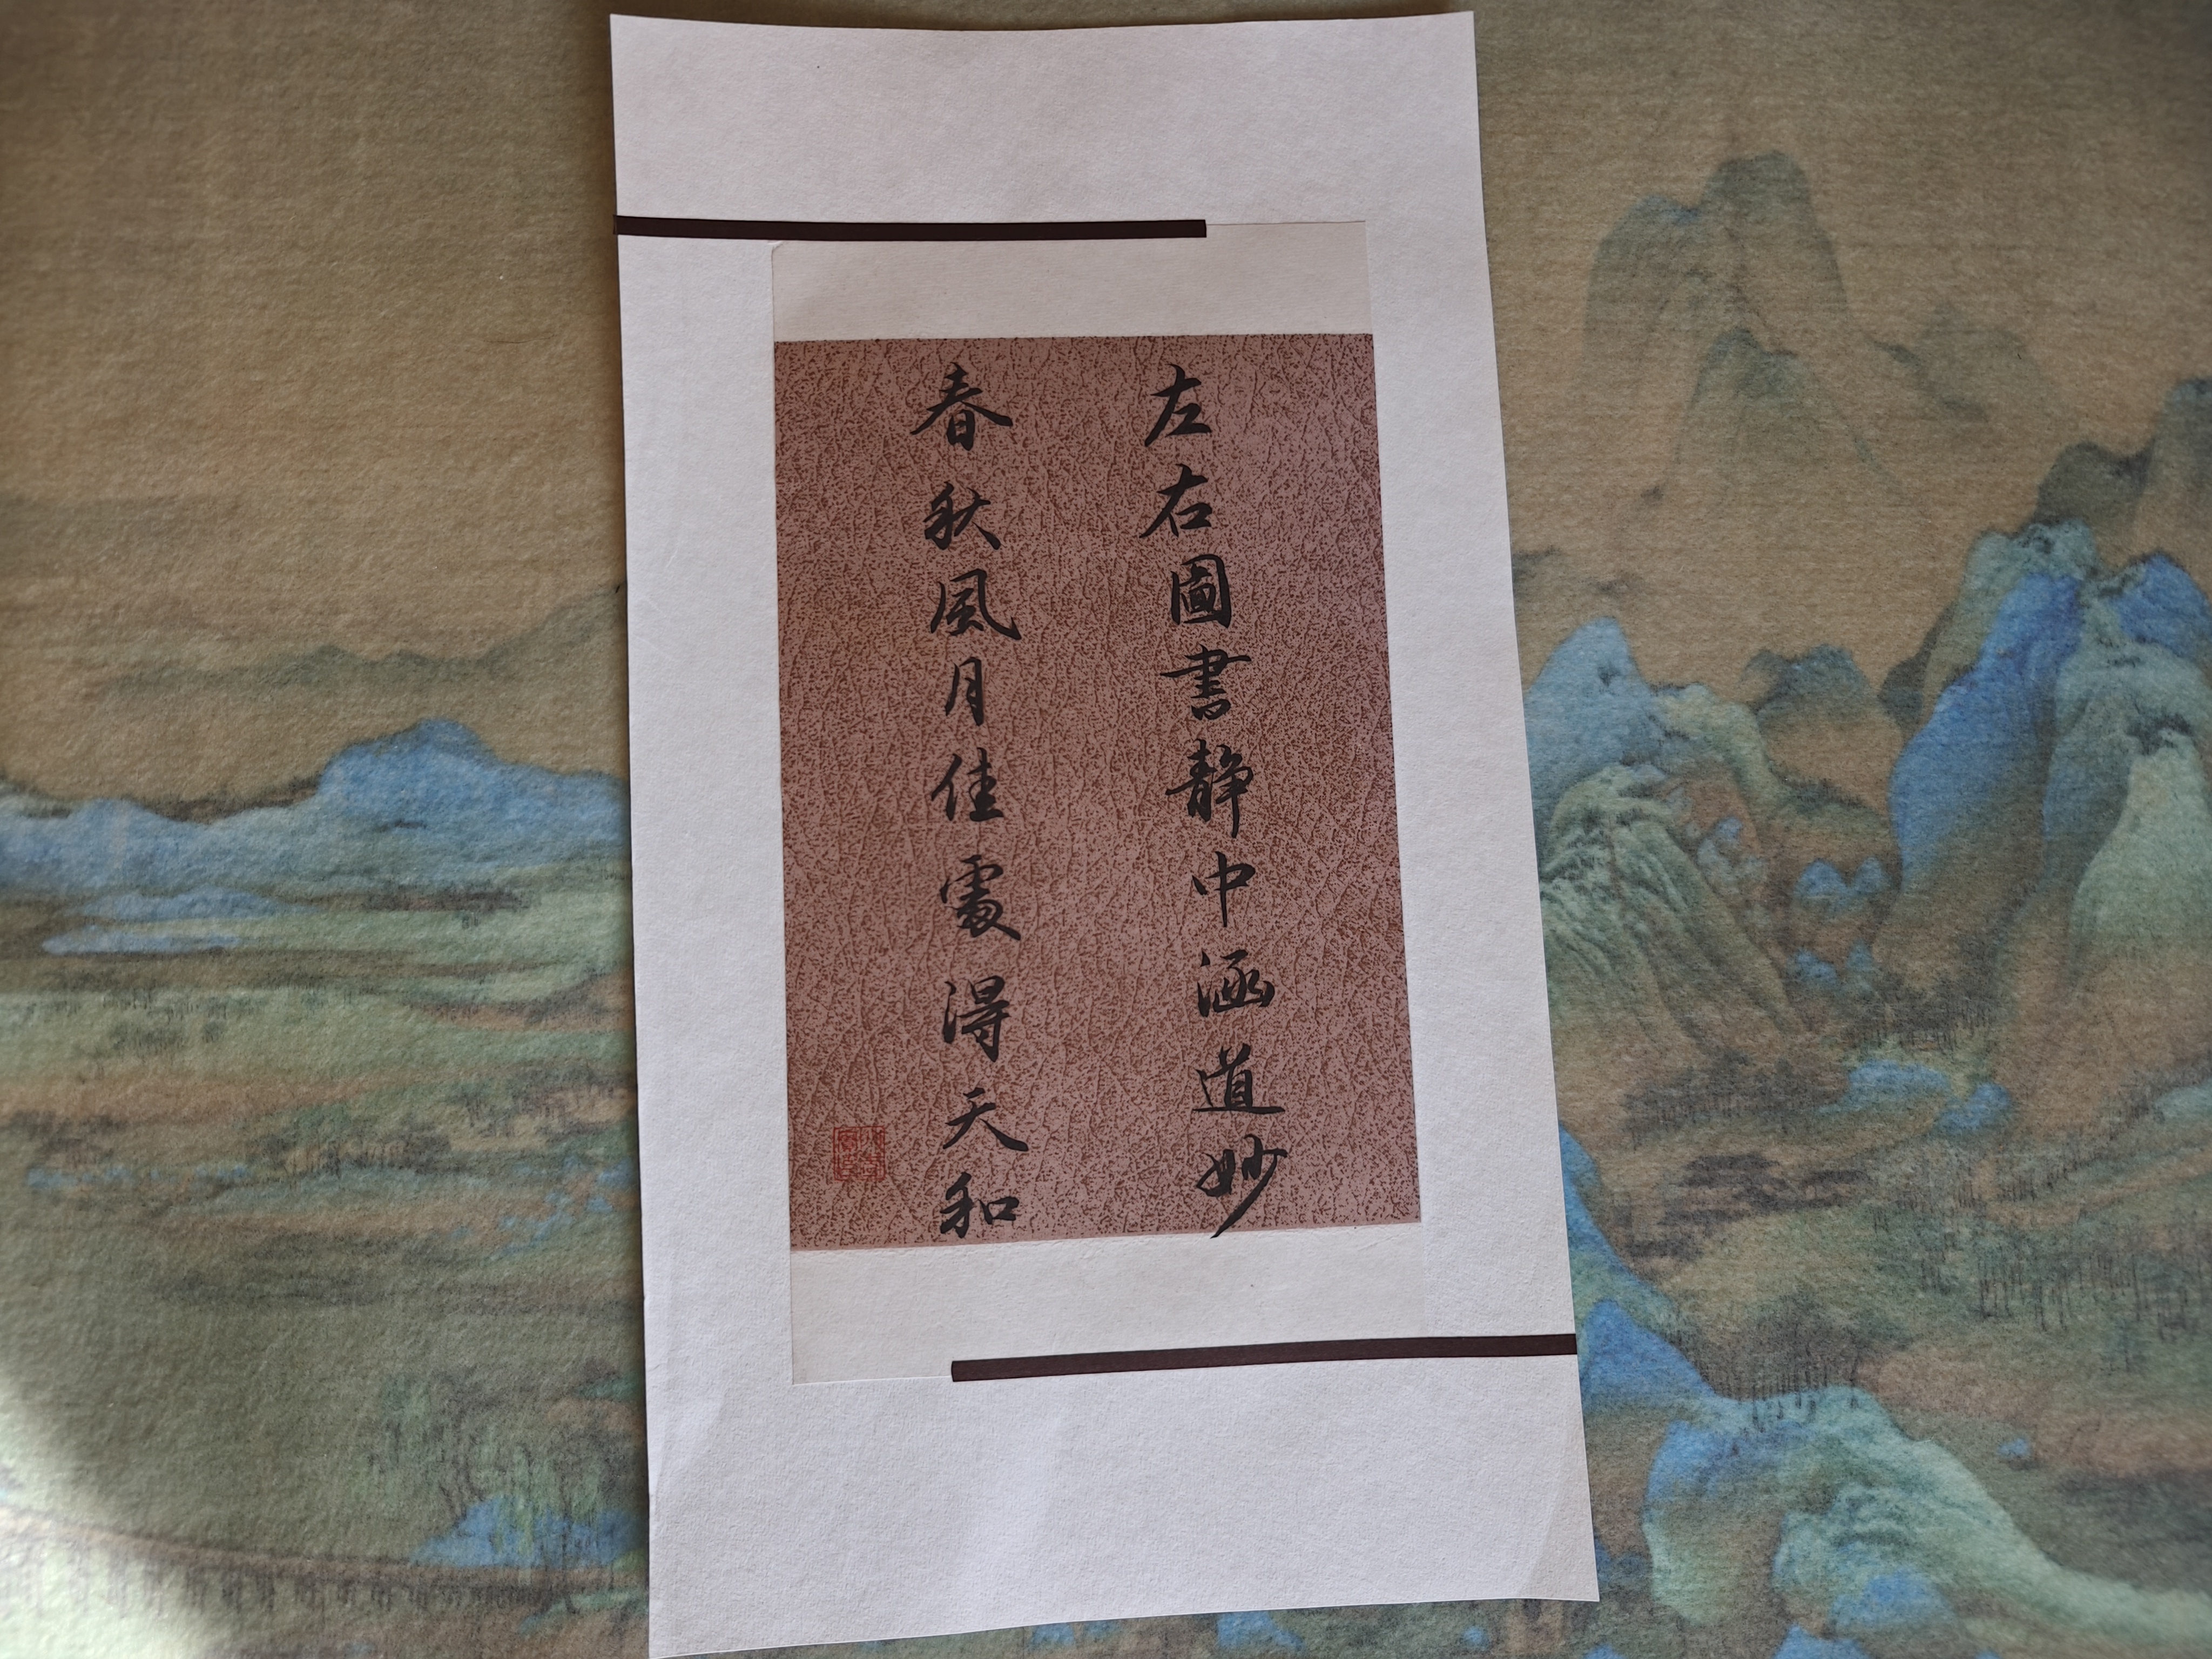 左右圖書静中涵道妙
春秋風月佳處得天和